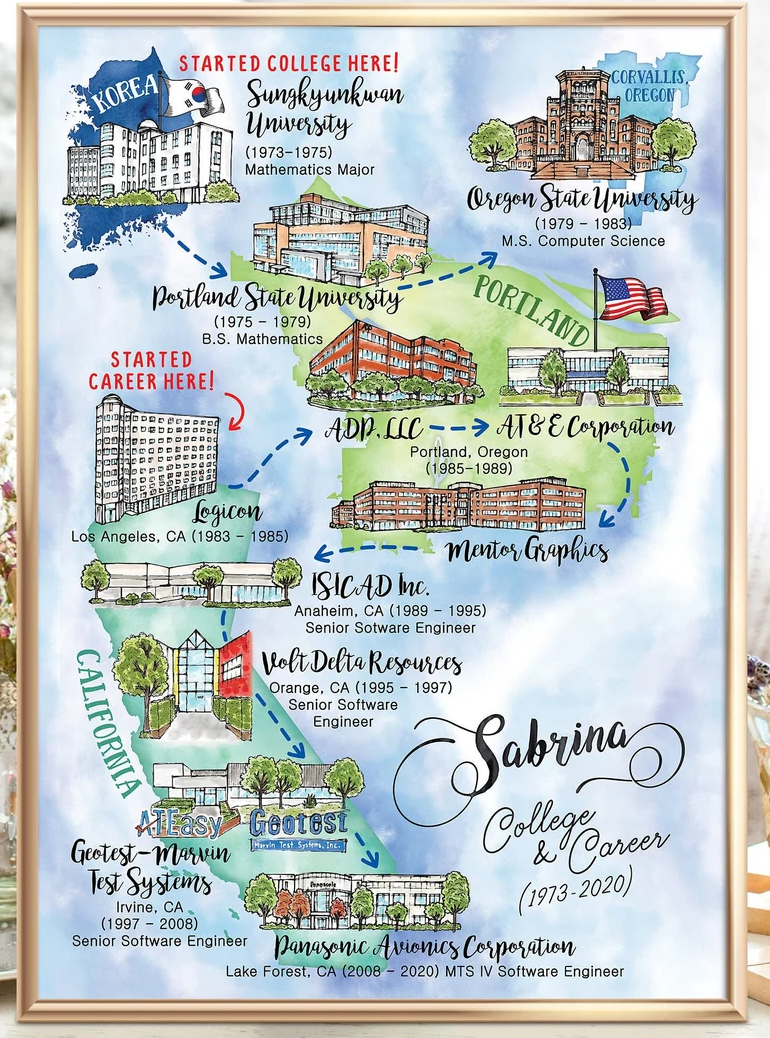 STARTED COLLEGE HERE!
KOREA
Sungkyunkwan
University
(1973-1975)
Mathematics Major
CORVALLIS,
OREGON
Oregon State University
(1979 - 1983)
M.S. Computer Science
Portland State University
(1975 - 1979)
B.S. Mathematics
PORTLAND
STARTED
CAREER HERE!
ADP, LLC
AT&E Corporation
Portland, Oregon
(1985-1989)
Logicon
Los Angeles, CA (1983 - 1985)
Mentor Graphics
ISICAD Inc.
Anaheim, CA (1989 - 1995)
Senior Sotware Engineer
CALIFORNIA
Volt Delta Resources
Orange, CA (1995 - 1997)
Senior Software
Engineer
Sabrina
College
& Career
(1973-2020)
ATEasy
Geotest
Marvin Test Systems, Inc.
Geotest-Marvin
Test Systems
Irvine, CA
(1997 - 2008)
Senior Software Engineer
Panasonic
Panasonic Avionics Corporation
Lake Forest, CA (2008 - 2020) MTS IV Software Engineer